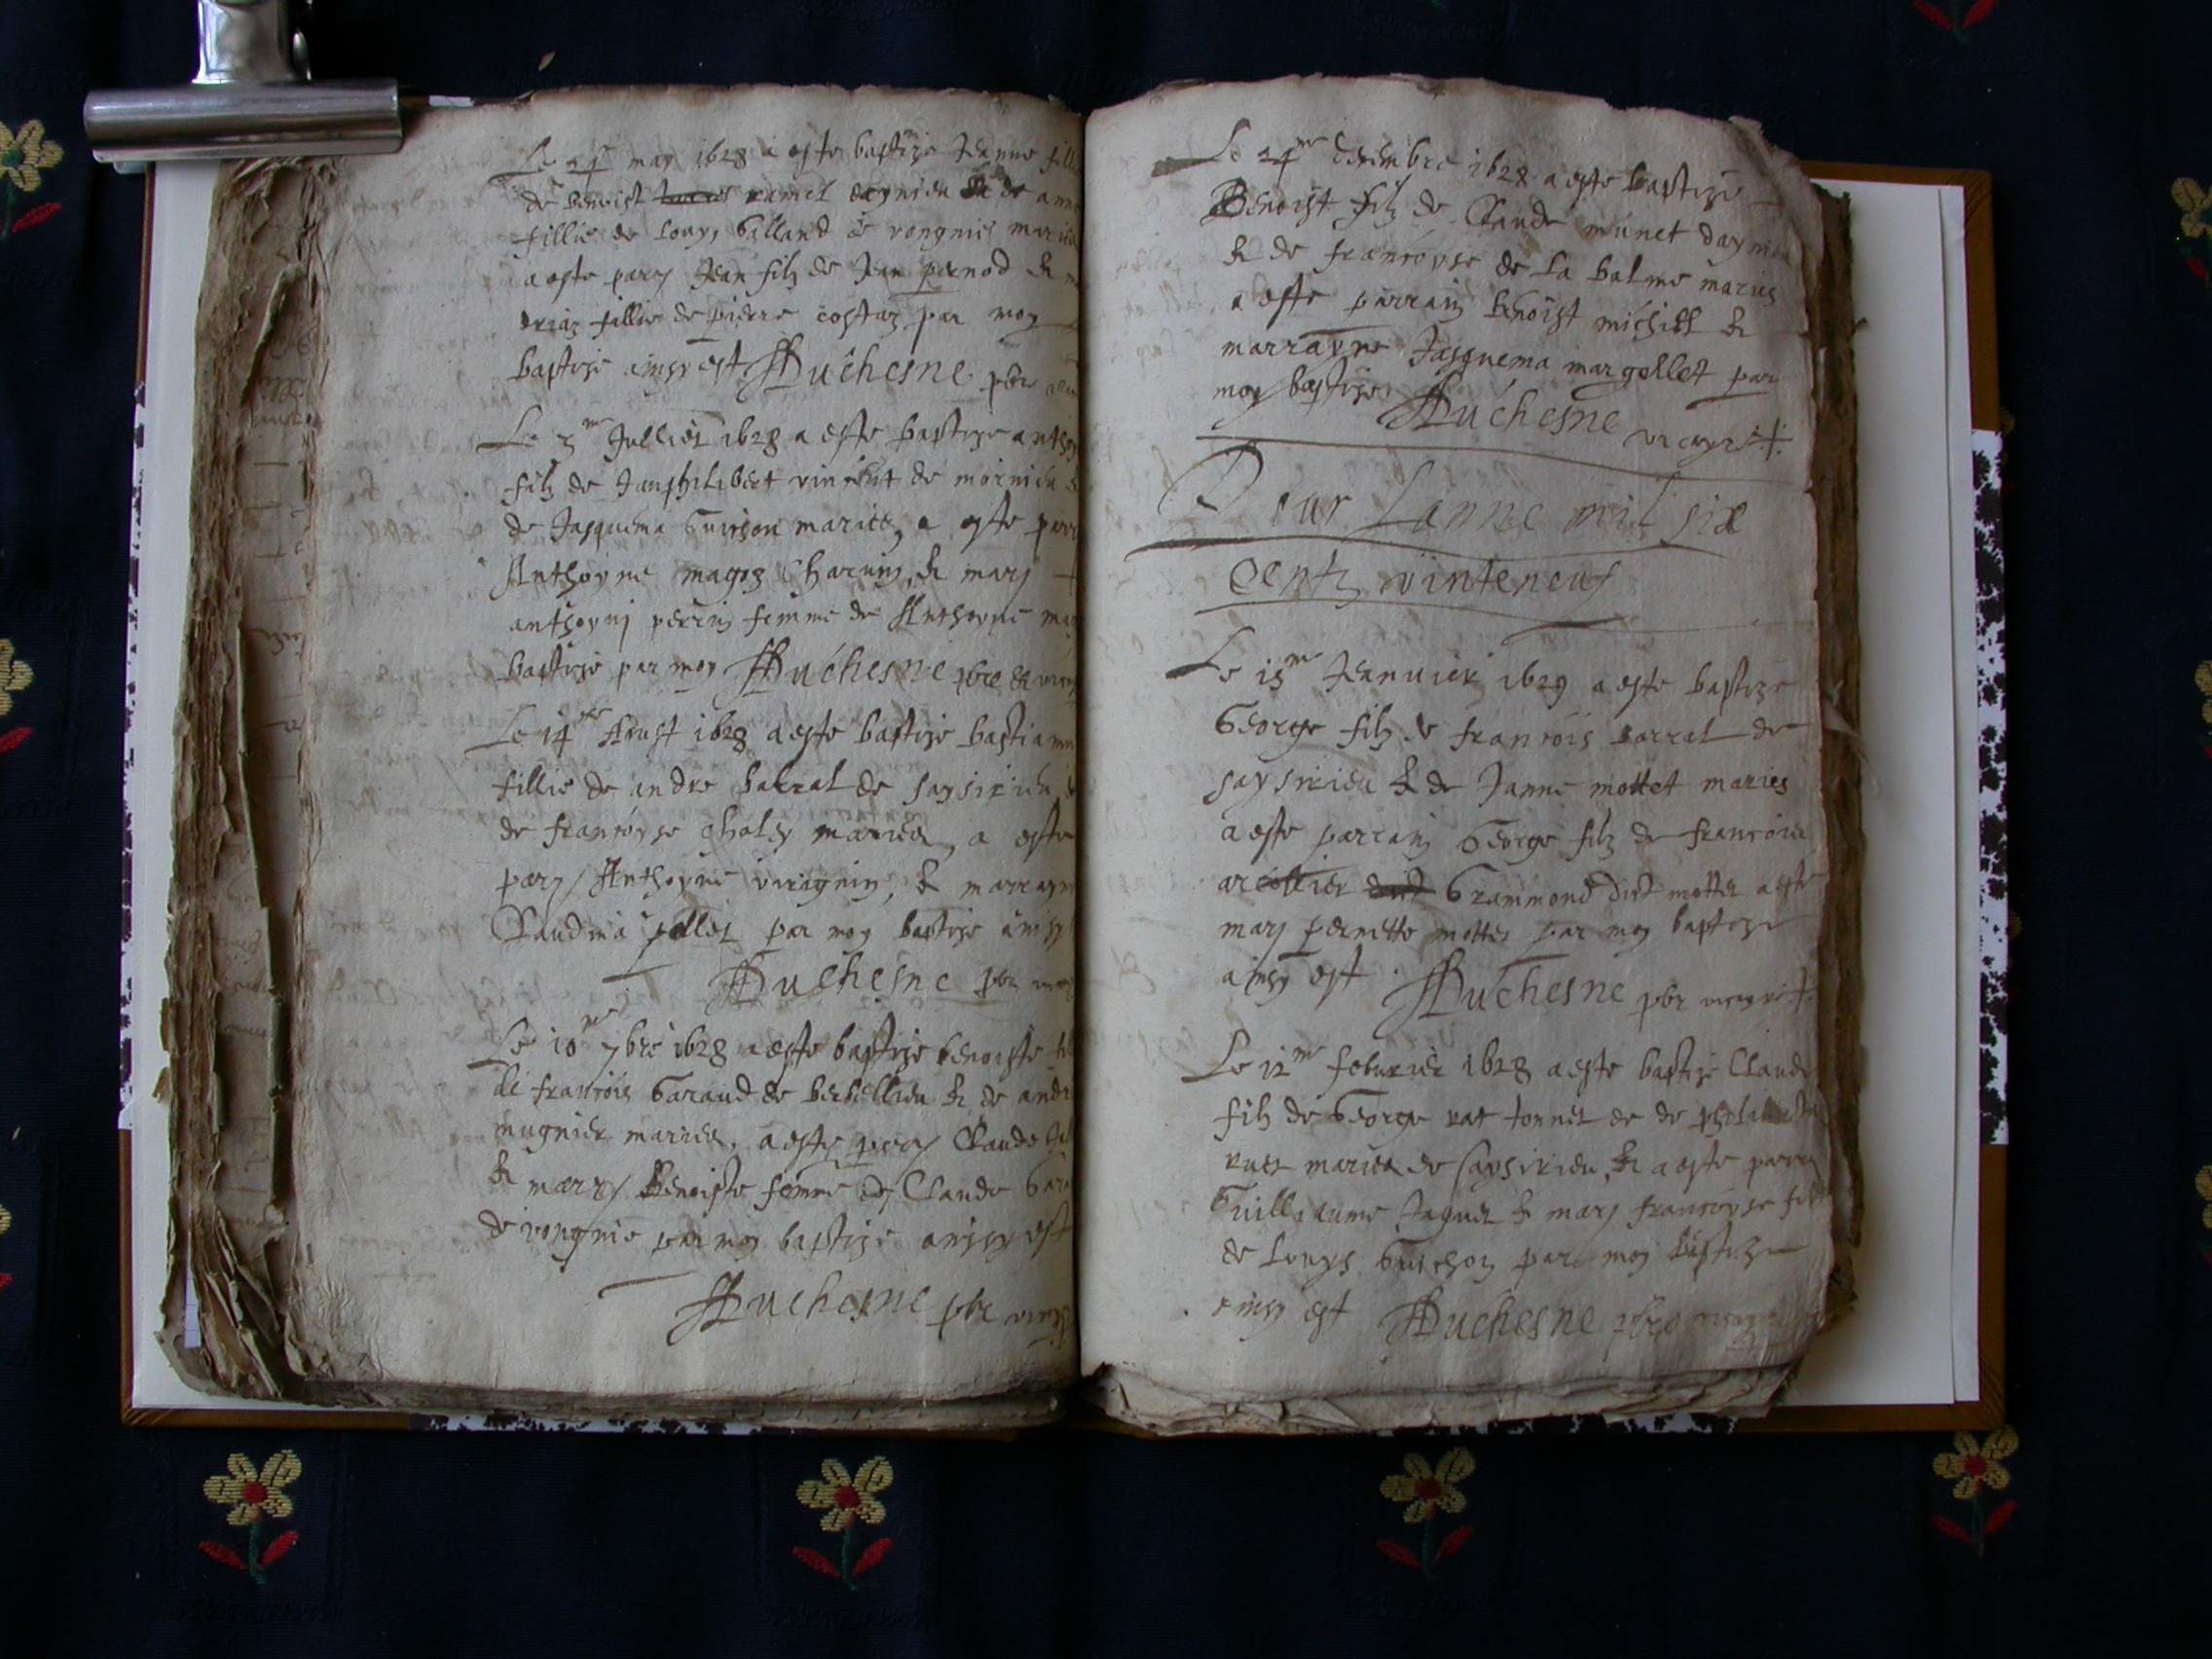 Le may 1628 a este baptize Jeanne fill
de benoist ramel daynieu & de anne
fillie de Louys Galland de rongnie maries
a este pary Jean filz de Jean pernod &
fillie de pierre costaz par moy
baptize ainsy est Duchesne pbr
Le 3me Julliet 1628 a este baptize anthoy
filz de Janphilibert vincent de mornieu &
de Jasquema Guichon maries, a este parr
Anthoyne magoz & mary
anthoyni perrin femme de Anthoyne ma
baptize par moy Duchesne pbre & vicay
Le 14me Aoust 1628 a este baptize bastianne
fillie de andre barral de saysirieu &
de françoyse choley maries, a este
pary Anthoyne viragnin, & marrayn
Claudina pellet par moy baptize ainsy
Duchesne pbr vicay
Le 10me 7bre 1628 a este baptize benoiste fil
de françois Garaud de & de andr
mugnier maries, a este pary Claude
& mary Benoiste femme de Claude Gara
de rongnie par moy baptize ainsy est
Duchesne pbr vicay
Le 24me decembre 1628 a este baptize
Benoist filz de Claude munet daynieu
& de françoyse de La balme maries
a este parrain benoist michill &
marrayne Jasquema margollet par
moy baptize Duchesne vicayre
Pour Lanne mil six
centz vinteneuf
Le 15me Jeanvier 1629 a este baptize
George filz de françois barral de
saysirieu & de Janne mottet maries
a este parrain George filz de françois
arcollier Grammond dict mottet a este
mary pernette mottet par moy baptize
ainsy est Duchesne pbr vicayre
Le 12me febvrier 1628 a este baptize Claude
filz de George rat tonnel de de
ruet maries de saysirieu, & a este parry
Guillaume Jaquet & mary françoyse fil
de Louys Guichon par moy baptize
ainsy est Duchesne pbre vicayre